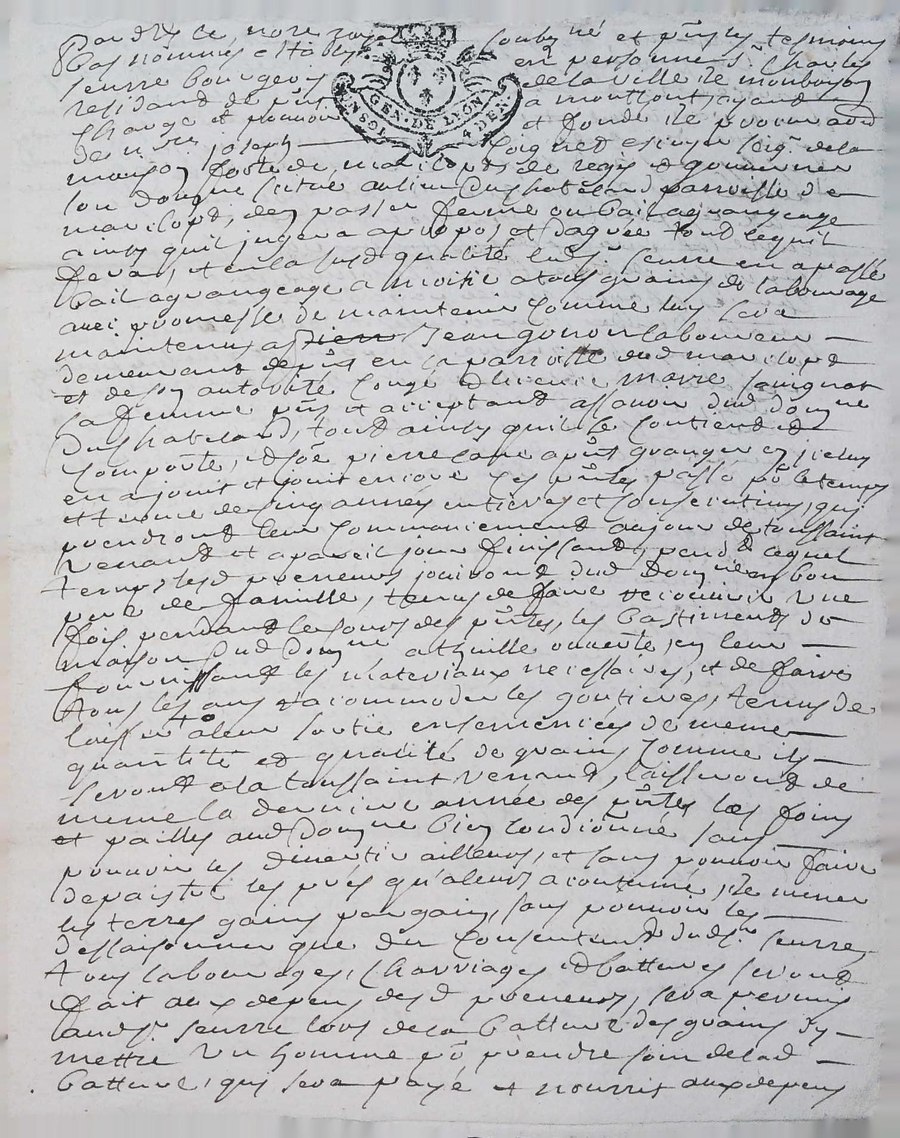 Pardevant le notaire royal soubsigné et présens tesmoins
bas nommés estably en personne Sr Charles
Seurre bourgeois de la ville de
residand de pnt a montlont, ayand
charge et pouvoir et fondé de procura
de joseph
GEN. DE LYON
UN SOL 4 DEN
marilopt de regir et gouverner
son domyne scitué au lieu du chateland parroisse de
marilopt, de passer ferme ou bail a grangeage
ainsy quil jugera a propos et d'agréé tout ce quil
fera, et en la susd qualité led Sr Seurre en a passé
bail a grangeage a moitié a tous grains de labourage
avec promesse de maintenir comme luy sera
maintenu a Jean gonon laboureur
demeurant de pnt en la parroisse dud marilopt
et de son autorité congé et licence marie
sa femme pnts et acceptand assavoir dud domyne
du chateland, tout ainsy quil se contiend et
comporte, et que pierre cane a pnt granger en jceluy
en a jouit et jouit encore ces pntes passé po le temps
et terme de cinq années entieres et consecutives, quy
prendront leur commancement au jour de toussaint
venand et a pareil jour finissand, pend lequel
temps lesd preneurs jouiront dud domyne en bon
pere de famille, tenus de faire recouvrir une
fois pendand le cours des pntes, les bastiments de
maison dud domyne a thuille ouverte, en leur
fournissand les materiaux necessaires, et de faire
tous les ans racommoder les goutieres, tenus de
laisser a leur sortie ensemencées de meme
quantité et qualité de grains comme ils
seront a la toussaint venand, laisseront de
meme la derniere année des pntes les foins
et pailles aud domyne bien condionné sans
pouvoir les divertir ailleurs, et sans pouvoir faire
depaistre les prés qu'a leurs acoutumé, de mener
les terres gains par gain, sans pouvoir les
dessaisonner que du consentemt dud Sr Seurre
tous labourages, charriages et battures seront
fait aux depens desd preneurs, sera permis
aud Sr Seurre lors de la batture des grains d'y
mettre un homme po prendre soin de lad
batture, quy sera payé et nourrit aux depens